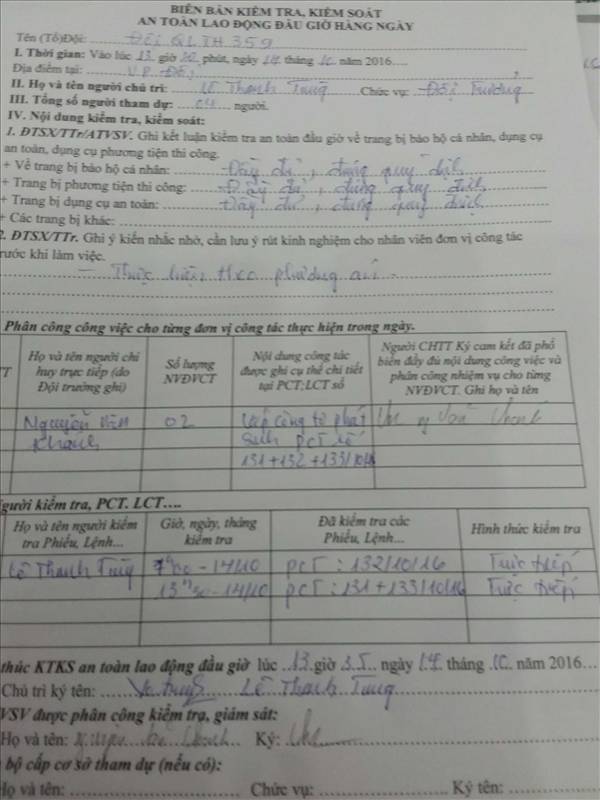 BIÊN BẢN KIỂM TRA, KIỂM SOÁT
AN TOÀN LAO ĐỘNG ĐẦU GIỜ HÀNG NGÀY
Tên (Tổ)Đội: Đội QLTH 359
I. Thời gian: Vào lúc 13 giờ 20 phút, ngày 14 tháng 10 năm 2016....
Địa điểm tại: V.P Đội
II. Họ và tên người chủ trì: Lê Thanh Tùng Chức vụ: Đội Trưởng
III. Tổng số người tham dự: 04 người.
IV. Nội dung kiểm tra, kiểm soát:
1. ĐTSX/TTr/ATVSV. Ghi kết luận kiểm tra an toàn đầu giờ về trang bị bảo hộ cá nhân, dụng cụ
an toàn, dụng cụ phương tiện thi công.
+ Về trang bị bảo hộ cá nhân: Đầy đủ, đúng quy định
+ Trang bị phương tiện thi công: Đầy đủ, đúng quy định
+ Trang bị dụng cụ an toàn: Đầy đủ, đúng quy định
+ Các trang bị khác:
2. ĐTSX/TTr. Ghi ý kiến nhắc nhở, cần lưu ý rút kinh nghiệm cho nhân viên đơn vị công tác
rước khi làm việc.
- Thực hiện theo phương án
Phân công công việc cho từng đơn vị công tác thực hiện trong ngày.
TT Họ và tên người chỉ huy trực tiếp (do Đội trưởng ghi) Số lượng NVĐVCT Nội dung công tác được ghi cụ thể chi tiết tại PCT;LCT số Người CHTT Ký cam kết đã phổ biến đầy đủ nội dung công việc và phân công nhiệm vụ cho từng NVĐVCT. Ghi họ và tên
Nguyễn Văn 02 Lắp công tơ phát
Khanh sinh PCT số
131+132+133/10/16
gười kiểm tra, PCT. LCT….
Họ và tên người kiểm tra Phiếu, Lệnh... Giờ, ngày, tháng kiểm tra Đã kiểm tra các Phiếu, Lệnh... Hình thức kiểm tra
Lê Thanh Tùng 7h30 - 14/10 PCT: 132/10/16 Trực tiếp
13h30 - 14/10 PCT: 131+133/10/16 Trực tiếp
thúc KTKS an toàn lao động đầu giờ lúc 13 giờ 35 ngày 14 tháng 10 năm 2016...
Chủ trì ký tên: Lê Thanh Tùng
VSV được phân công kiểm tra, giám sát:
Họ và tên: Ký:
bộ cấp cơ sở tham dự (nếu có):
Họ và tên: Chức vụ: Ký tên: